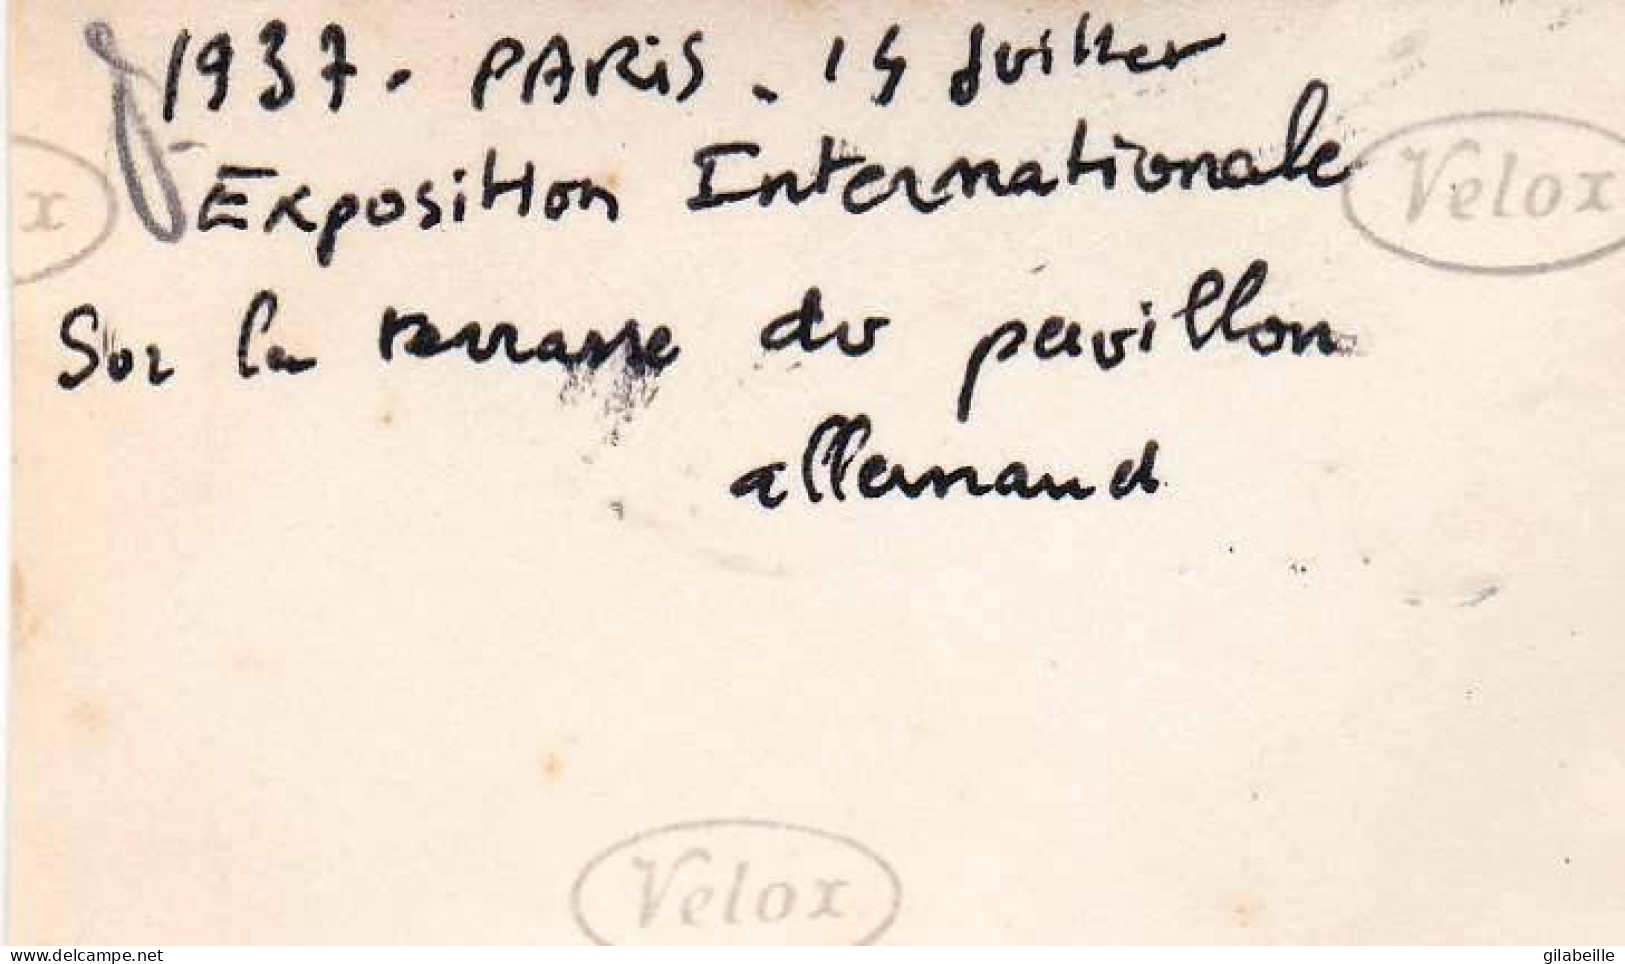 1937. PARIS. 14 Juillet
Exposition Internationale
Velox
x
Sur la terrasse du pavillon
allemand
Velox
delcampe.net
gilabeille